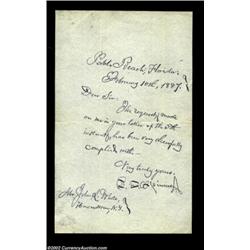 Pablo Beach, Florida
February 10th, 1887.
Dear Sir:
The request made
on me in your letter of the 5th
instant, has been very cheerfully
complied with.
Very truly yours,
John R. White,
N.Y.
© 2002 Heritage